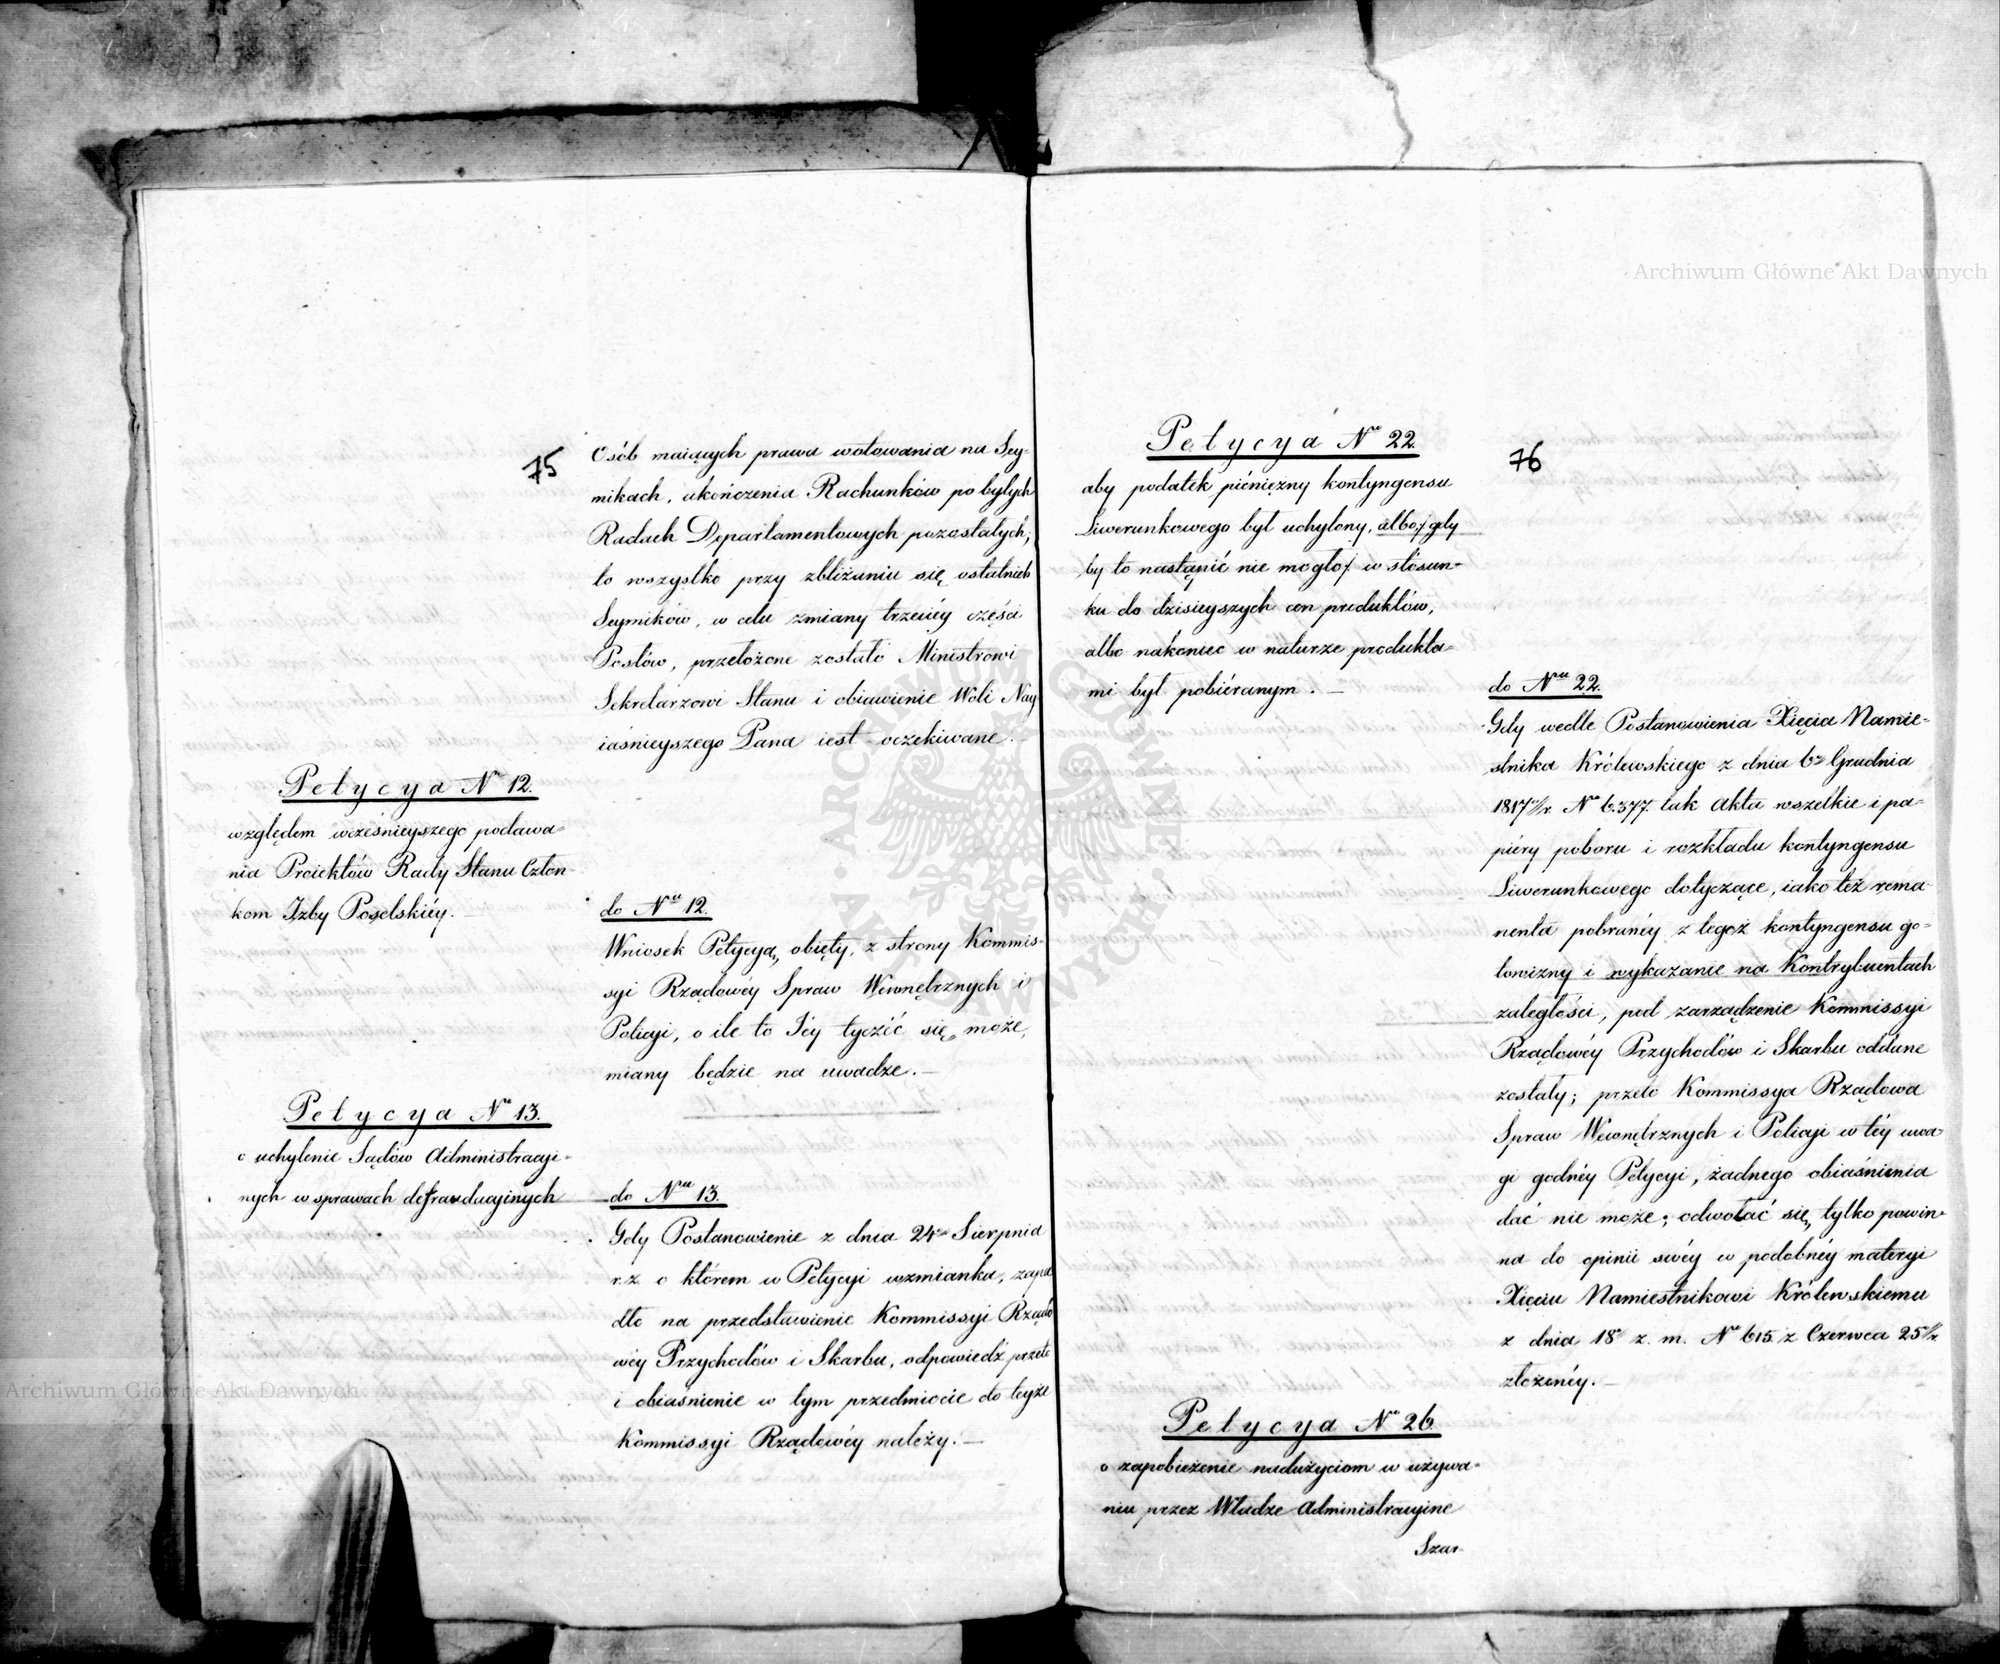 75
Osób maiących prawa wotowania na Sey-
mikach, ukończenia Rachunków po byłych
Radach Departamentowych pozostałych;
to wszystko przy zbliżaniu się ostatnich
Seymików, w celu zmiany trzeciéy części
Posłów, przełożone zostało Ministrowi
Sekretarzowi Stanu i obiawienie Woli Nay
iaśnieyszego Pana iest oczekiwane.—
Petycya No 12.
względem wcześnieyszego podawa-
nia Proiektów Rady Stanu Człon-
kom Izby Poselskiéy.—
do Nru 12.
Wniosek Petycyą obięty, z strony Kommis-
syi Rządowéy Spraw Wewnętrznych i
Policyi, o ile to Jéy tyczéć się może,
miany będzie na uwadze.—
Petycya No 13.
o uchylenie Sądów Administracyi-
nych w sprawach defraudacyinych
do Nru 13.
Gdy Postanowienie z dnia 24go Sierpnia
r. z. o którem w Petycyi wzmianka, zapa
dło na przedstawienie Kommissyi Rządo
wéy Przychodów i Skarbu, odpowiedź przeto
i obiaśnienie w tym przedmiocie do teyże
Kommissyi Rządowéy należy.—
Petycya No 22.
aby podatek piéniężny kontyngensu
Liwerunkowego był uchylony, albo / gdy
by to nastąpić nie mogło / w stósun-
ku do dzisieyszych cen produktów,
albo nakoniec w naturze produkta-
mi był pobiéranym.—
76
do Nru 22.
Gdy wedle Postanowienia Xięcia Namie-
stnika Królewskiego z dnia 6go Grudnia
1817 r. No 6.377. tak Akta wszelkie i pa-
piéry poboru i rozkładu kontyngensu
Liwerunkowego dotyczące, iako też rema-
nenta pobranéy z tegoż kontyngensu go-
towizny i wykazanie na Kontrybuentach
zaległości, pod zarządzenie Kommissyi
Rządowéy Przychodów i Skarbu oddane
zostały; przeto Kommissya Rządowa
Spraw Wewnętrznych i Policyi w téy uwa
gi godnéy Petycyi, żadnego obiaśnienia
dać nie może; odwołać się tylko powin-
na do opinii swéy w podobnéy materyi
Xięciu Namiestnikowi Królewskiemu
z dnia 18 z. m. No 615. z Czerwca 25
złożonéy.—
Petycya No 26.
o zapobieżenie nadużyciom w używa-
niu przez Władze Administracyine
Szar-
Archiwum Główne Akt Dawnych
Archiwum Główne Akt Dawnych
ARCHIWUM GŁÓWNE AKT DAWNYCH